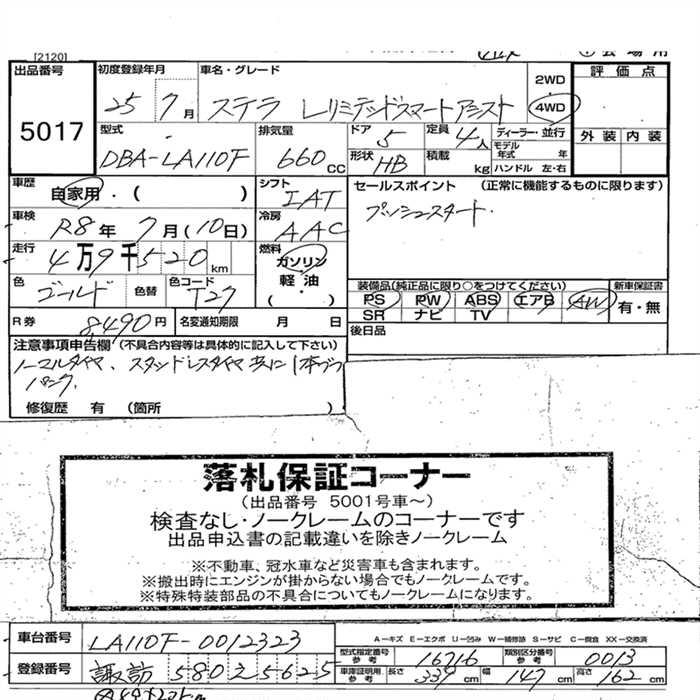 [2120]
出品番号 初度登録年月 車名・グレード 2WD 評価点
5017 25年7月 ステラ Lリミテッドスマートアシスト 4WD
型式 排気量 ドア 定員 ディーラー・並行 外装 内装
DBA-LA110F 660cc 5 4人 モデル年式 年
形状 HB 積載 kg ハンドル 左・右
車歴 自家用・( ) シフト IAT セールスポイント (正常に機能するものに限ります)
車検 R8年7月(10日) 冷房 AAC プッシュスタート.
走行 4万9千520km 燃料 ガソリン 軽油・( )
色 ゴールド 色替 色コード T27 装備品(純正品に限り○をつけてください) 新車保証書
PS PW ABS エアB AW 有・無
SR ナビ TV
R券 8,490円 名変通知期限 月 日 後日品
注意事項申告欄 (不具合内容等は具体的に記入して下さい)
ノーマルタイヤ、スタッドレスタイヤ共に1本づつ
パンク.
修復歴 有 (箇所 )
落札保証コーナー
(出品番号 5001号車~)
検査なし・ノークレームのコーナーです
出品申込書の記載違いを除きノークレーム
※不動車、冠水車など災害車も含まれます。
※搬出時にエンジンが掛からない場合でもノークレームです。
※特殊特装部品の不具合についてもノークレームになります。
車台番号 LA110F-0012323 A-キズ E-エクボ U-凹み W-補修跡 S-サビ C-腐食 XX-交換済
型式指定番号 参考 16716 類別区分番号 参考 0013
登録番号 諏訪 580 え 5625 車庫証明用 参考 長さ 339cm 幅 147cm 高さ 162cm